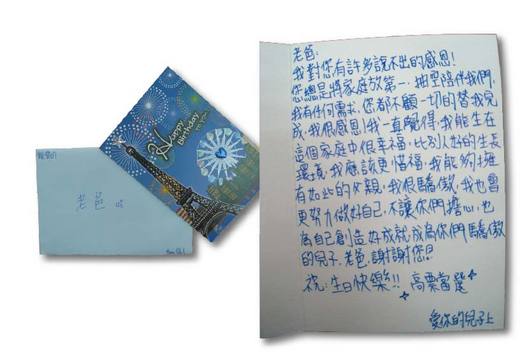 親愛的
老爸 收
Happy
Birthday
to you
老爸:
我對您有許多說不出的感恩!
您總是將家庭放第一,抽空陪伴我們,
我有任何需求,您都不顧一切的替我完
成,我很感恩!我一直覺得,我能生在
這個家庭中很幸福,比別人好的生長
環境,我應該更惜福,我能夠擁
有如此的父親,我很驕傲,我也會
更努力做好自己,不讓你們擔心,也
為自己創造好成就,成為你們驕傲
的兒子,老爸,謝謝您!!
祝:生日快樂!! 高票當選
愛你的兒子上